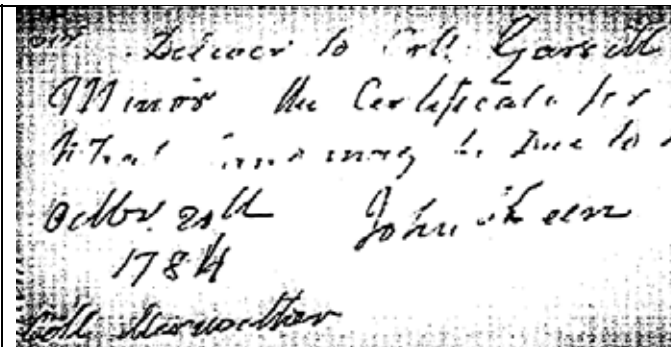 Sir Deliver to Coll. Garrett
Minor the Certificate for
what may be Due to
Octbr. 20th John
1784
Coll Merriwether